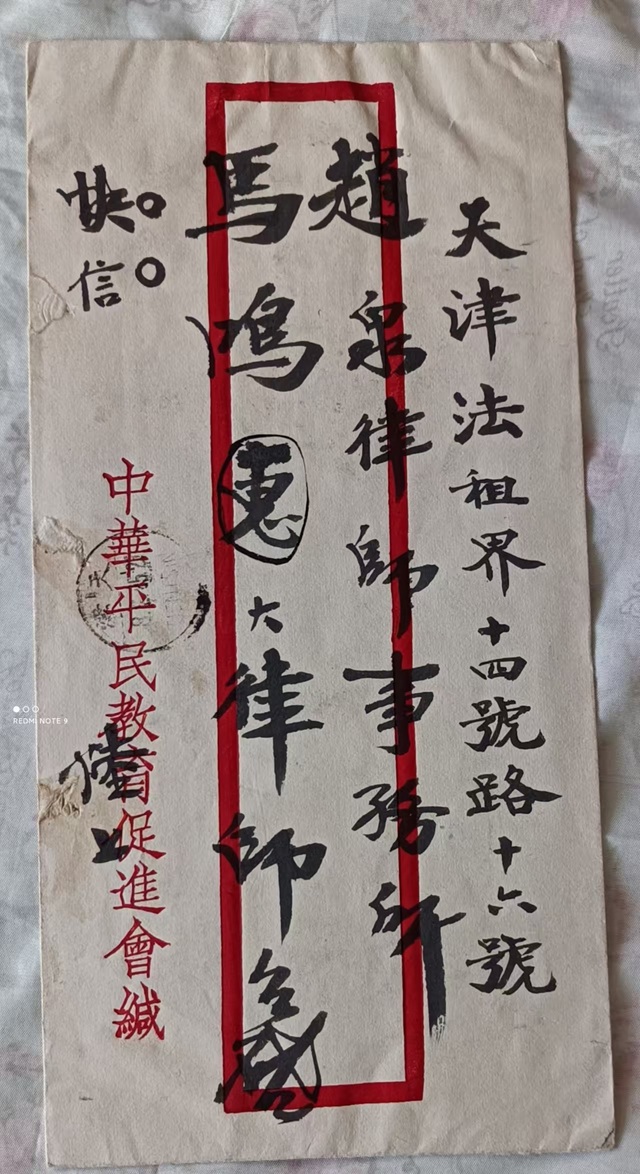 天津法租界十四號路十六號
趙泉律師事務所
馬鴻惠大律師台啟
快信
中華平民教育促進會緘
REDMI NOTE 9